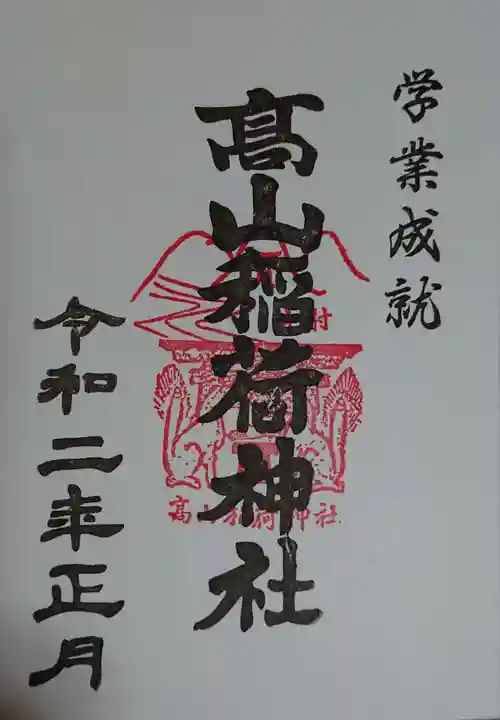 学業成就
髙山稲荷神社
髙山稲荷神社
令和二年正月